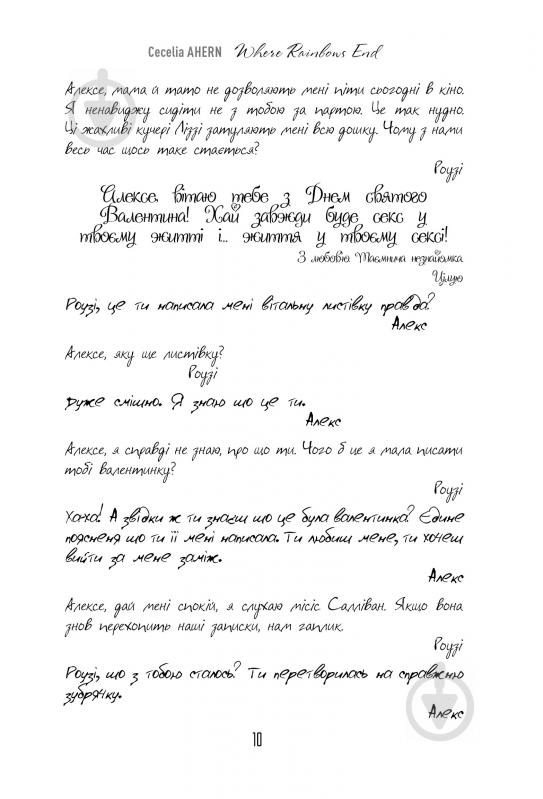 Cecelia AHERN Where Rainbows End
Алексе, мама й тато не дозволяють мені піти сьогодні в кіно.
Я ненавиджу сидіти не з тобою за партою. Це так нудно.
Ці жахливі кучері Ліззі затуляють мені всю дошку. Чому з нами
весь час щось таке стається?
Роузі
Алексе, вітаю тебе з Днем святого
Валентина! Хай завжди буде секс у
твоєму житті і.. життя у твоєму сексі!
З любов'ю Таємнича незнайомка
Цілую
Роузі, це ти написала мені вітальну листівку правда?
Алекс
Алексе, яку ще листівку?
Роузі
Дуже смішно. Я знаю шо це ти.
Алекс
Алексе, я справді не знаю, про що ти. Чого б це я мала писати
тобі валентинку?
Роузі
Хаха! А звідки ж ти знаєш шо це була валентинка? Єдине
поясненя шо ти її мені написала. Ти любиш мене, ти хочеш
вийти за мене заміж.
Алекс
Алексе, дай мені спокій, я слухаю місіс Салліван. Якщо вона
знов перехопить наші записки, нам гаплик.
Роузі
Роузі, шо з тобою сталось? Ти перетворилась на справжню
зубрячку.
Алекс
10